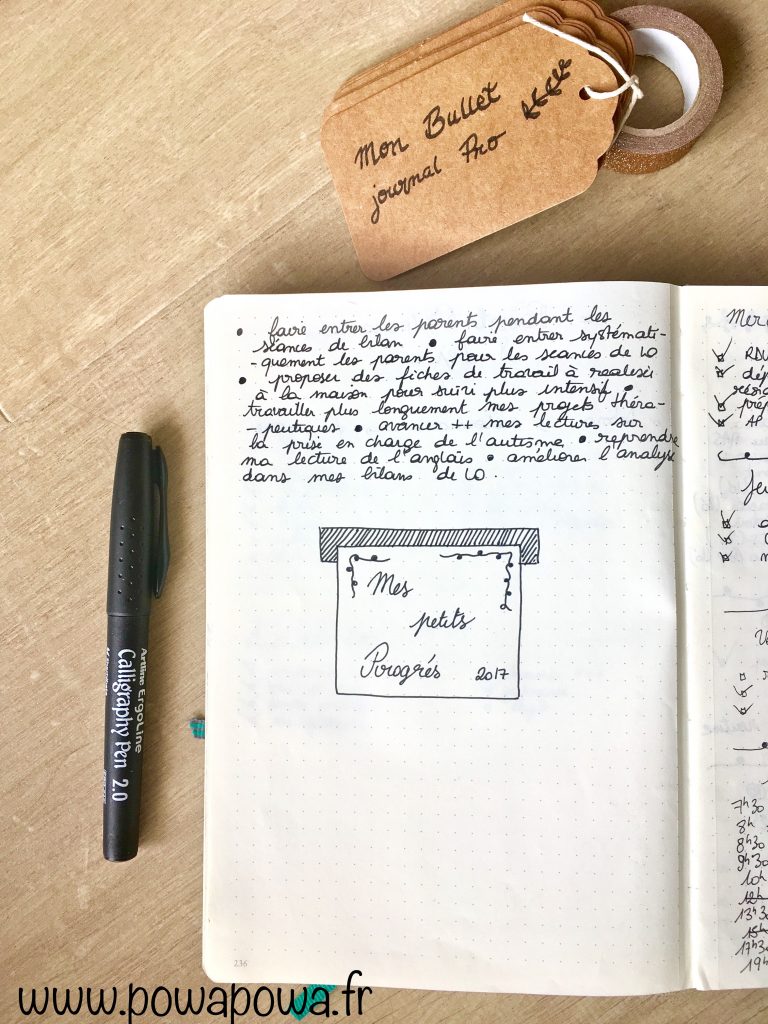 Mon Bullet
journal Pro
• faire entrer les parents pendant les
séances de bilan • faire entrer systémati-
-quement les parents pour les séances de LO
• proposer des fiches de travail à realiser
à la maison pour suivi plus intensif •
travailler plus longuement mes projets théra-
-peutiques • avancer ++ mes lectures sur
la prise en charge de l'autisme • reprendre
ma lecture de l'anglais • améliorer l'analyse
dans mes bilans de LO.
Mes
petits
Progrés 2017
236
Artline Ergoline
Calligraphy Pen 2.0
Mer
RDV
AP
Jeu
7h30
8h
8h30
9h30
10h
12h
13h30
15h
17h30
19h
www.powapowa.fr